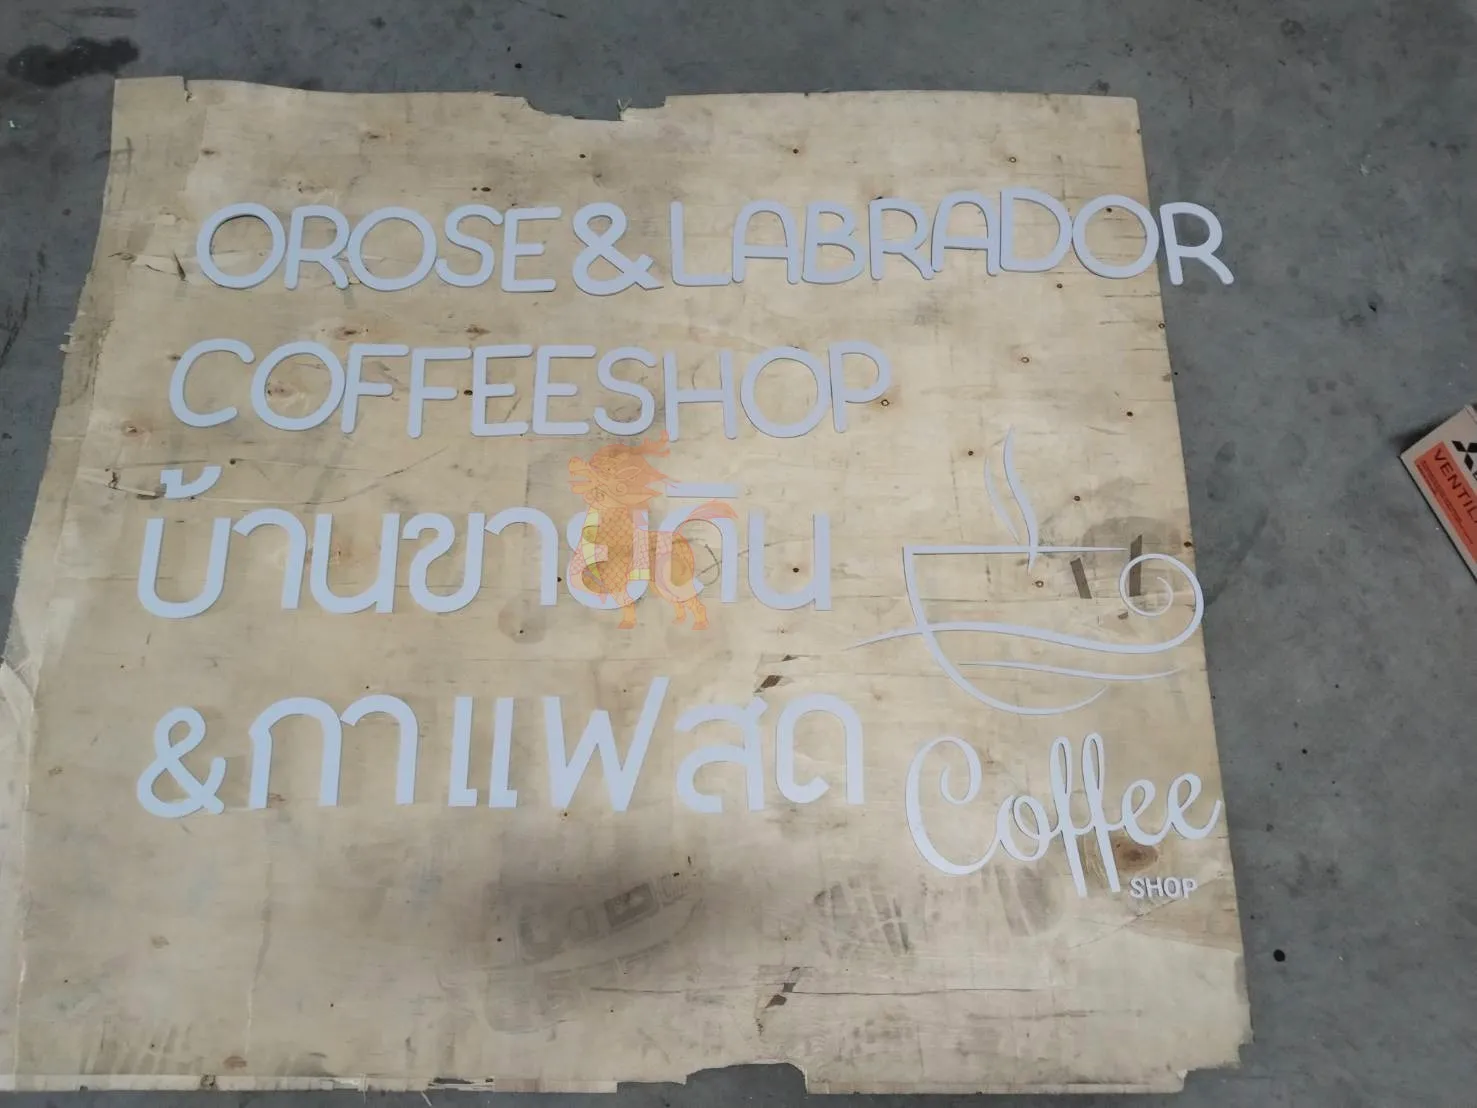 OROSE&LABRADOR
COFFEESHOP
บ้านขายดิน
&กาแฟสด
Coffee
SHOP